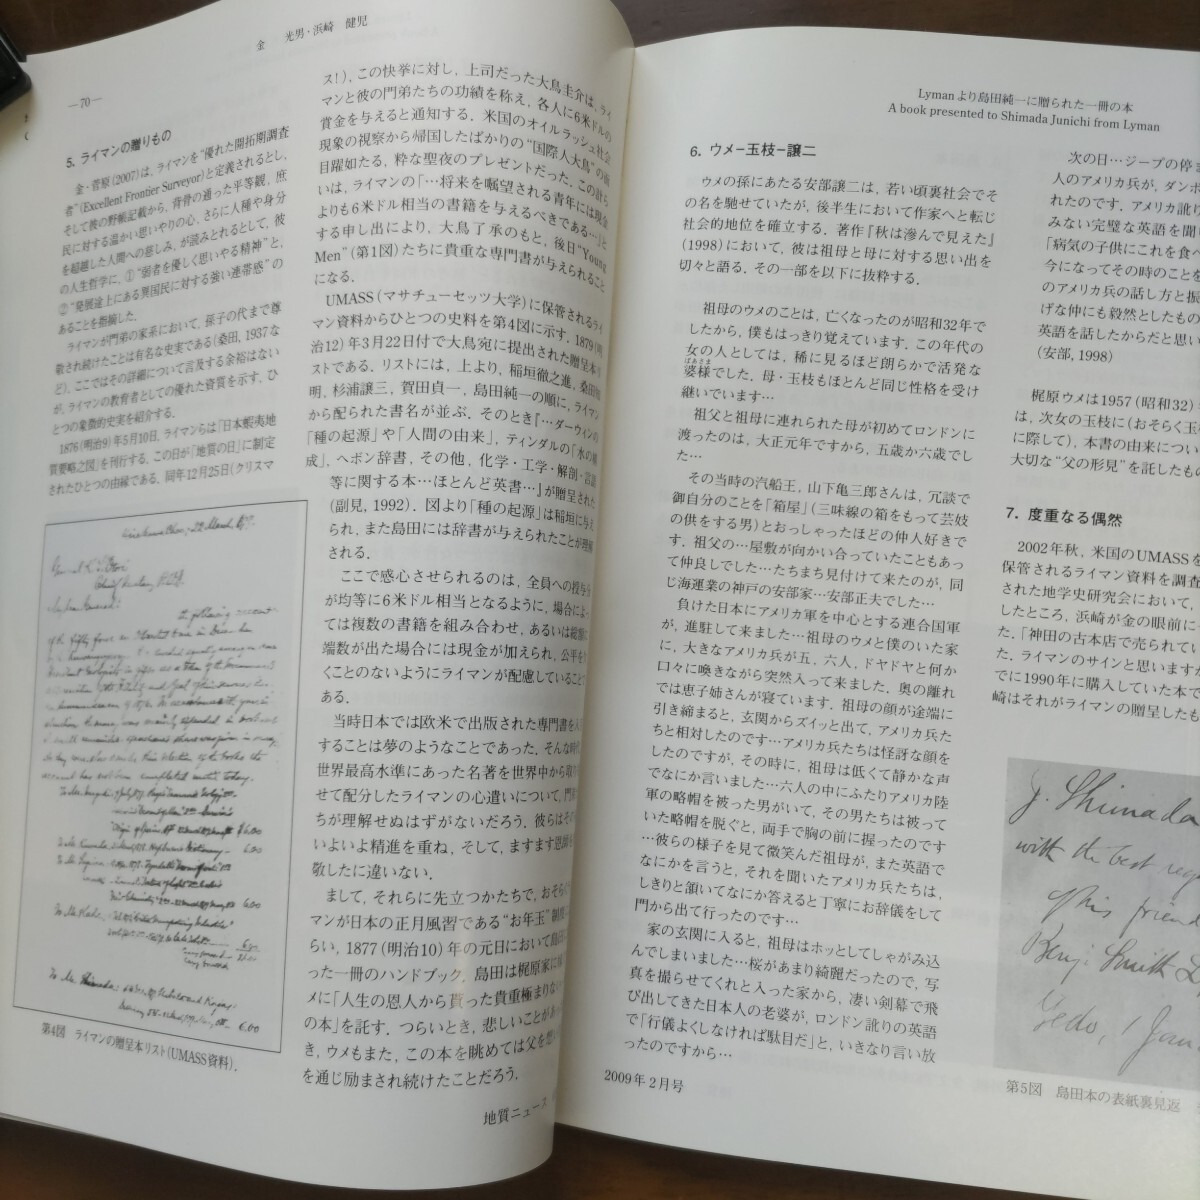 金 光男・浜崎 健児
―70―
5. ライマンの贈りもの
金・菅原(2007)は,ライマンを“優れた開拓期調査
者”(Excellent Frontier Surveyor)と定義されるとし,
そして彼の野帳記録から,背骨の通った平等観,庶
民に対する温かい思いやりの心,さらに人種や身分
を超越した人間への慈しみ,が読みとれるとして,彼
の人生哲学に,①“弱者を優しく思いやる精神”と,
②“発展途上にある異国民に対する強い連帯感”の
あることを指摘した.
ライマンが門弟の家系において,孫子の代まで尊
敬され続けたことは有名な史実である(桑田,1937な
ど).ここではその詳細について言及する余裕はない
が,ライマンの教育者としての優れた資質を示す,ひ
とつの象徴的史実を紹介する.
1876(明治9)年5月10日,ライマンらは「日本蝦夷地
質要略之図」を刊行する.この日が「地質の日」に制定
されたひとつの由縁である.同年12月25日(クリスマ
第4図 ライマンの贈呈本リスト(UMASS資料).
ス!),この快挙に対し,上司だった大鳥圭介は,ライ
マンと彼の門弟たちの功績を称え,各人に6米ドルの
賞金を与えると通知する.米国のオイルラッシュ社会
現象の視察から帰国したばかりの“国際人大鳥”の面
目躍如たる,粋な聖夜のプレゼントだった.この計ら
いは,ライマンの「…将来を嘱望される青年には現金
よりも6米ドル相当の書籍を与えるべきである…」と
する申し出により,大鳥了承のもと,後日“Young
Men”(第1図)たちに貴重な専門書が与えられること
になる.
UMASS(マサチューセッツ大学)に保管されるライ
マン資料からひとつの史料を第4図に示す.1879(明
治12)年3月22日付で大鳥宛に提出された贈呈本リ
ストである.リストには,上より,稲垣徹之進,桑田知
明,杉浦譲三,賀田貞一,島田純一の順に,ライマン
から配られた書名が並ぶ.そのとき『…ダーウィンの
「種の起源」や「人間の由来」,ティンダルの「水の構
成」,ヘボン辞書,その他,化学・工学・解剖・言語
等に関する本…ほとんど英書…』が贈呈された
(副見,1992).図より「種の起源」は稲垣に与え
られ,また島田には辞書が与えられたことが理解
される.
ここで感心させられるのは,全員への授与分
が均等に6米ドル相当となるように,場合によっ
ては複数の書籍を組み合わせ,あるいは総額に
端数が出た場合には現金が加えられ,公平を
くことのないようにライマンが配慮していることで
ある.
当時日本では欧米で出版された専門書を入手
することは夢のようなことであった.そんな時代
世界最高水準にあった名著を世界中から取り
せて配分したライマンの心遣いについて,門弟
ちが理解せぬはずがないだろう.彼らはその
いよいよ精進を重ね,そして,ますます恩師を
敬したに違いない.
まして,それらに先立つかたちで,おそらく
マンが日本の正月風習である“お年玉”制度
らい,1877(明治10)年の元日において島田
った一冊のハンドブック.島田は梶原家に
メに「人生の恩人から貰った貴重極まりない
の本」を託す.つらいとき,悲しいことがあっ
き,ウメもまた,この本を眺めては父を想い
を通じ励まされ続けたことだろう.
地質ニュース
Lymanより島田純一に贈られた一冊の本
A book presented to Shimada Junichi from Lyman
6. ウメ−玉枝−譲二
ウメの孫にあたる安部譲二は,若い頃裏社会でそ
の名を馳せていたが,後半生において作家へと転じ
社会的地位を確立する.著作『秋は滲んで見えた』
(1998)において,彼は祖母と母に対する思い出を
切々と語る.その一部を以下に抜粋する.
祖母のウメのことは,亡くなったのが昭和32年で
したから,僕もはっきり覚えています.この年代の
女の人としては,稀に見るほど朗らかで活発な
婆様(ばあさま)でした.母・玉枝もほとんど同じ性格を受け
継いでいます…
祖父と祖母に連れられた母が初めてロンドンに
渡ったのは,大正元年ですから,五歳か六歳でし
た…
その当時の汽船王,山下亀三郎さんは,冗談で
御自分のことを「箱屋」(三味線の箱をもって芸妓
の供をする男)とおっしゃったほどの仲人好きで
す.祖父の…屋敷が向かい合っていたこともあっ
て仲良しでした…たちまち見付けて来たのが,同
じ海運業の神戸の安部家…安部正夫でした…
負けた日本にアメリカ軍を中心とする連合国軍
が,進駐して来ました…祖母のウメと僕のいた家
に,大きなアメリカ兵が五,六人,ドヤドヤと何か
口々に喚きながら突然入って来ました.奥の離れ
では恵子姉さんが寝ています.祖母の顔が途端に
引き締まると,玄関からズイッと出て,アメリカ兵た
ちと相対したのです…アメリカ兵たちは怪訝な顔を
したのですが,その時に,祖母は低くて静かな声
でなにか言いました…六人の中にふたりアメリカ陸
軍の略帽を被った男がいて,その男たちは被って
いた略帽を脱ぐと,両手で胸の前に握ったのです
…彼らの様子を見て微笑んだ祖母が,また英語で
なにかを言うと,それを聞いたアメリカ兵たちは,
しきりと頷いてなにか答えると丁寧にお辞儀をして
門から出て行ったのです…
家の玄関に入ると,祖母はホッとしてしゃがみ込
んでしまいました…桜があまり綺麗だったので,写
真を撮らせてくれと入った家から,凄い剣幕で飛
び出してきた日本人の老婆が,ロンドン訛りの英語
で「行儀よくしなければ駄目だ」と,いきなり言い放
ったのですから…
2009年2月号
次の日…ジープの停
人のアメリカ兵が,ダンボ
れたのです.アメリカ訛り
みない完璧な英語を聞い
「病気の子供にこれを食べ
今になってその時のことを
のアメリカ兵の話し方と振
げな仲にも毅然としたもの
英語を話したからだと思い
(安部,1998)
梶原ウメは1957(昭和32)
は,次女の玉枝に(おそらく玉
に際して),本書の由来につい
大切な“父の形見”を託したもの
7. 度重なる偶然
2002年秋,米国のUMASSを
保管されるライマン資料を調査
された地学史研究会において,
したところ,浜崎が金の眼前に
た.「神田の古本店で売られてい
た.ライマンのサインと思いますが
でに1990年に購入していた本で
崎はそれがライマンの贈呈したも
J. Shimada
with the best reg
of his friend
Benj. Smith L
Yedo, 1 Jan.
第5図 島田本の表紙裏見返